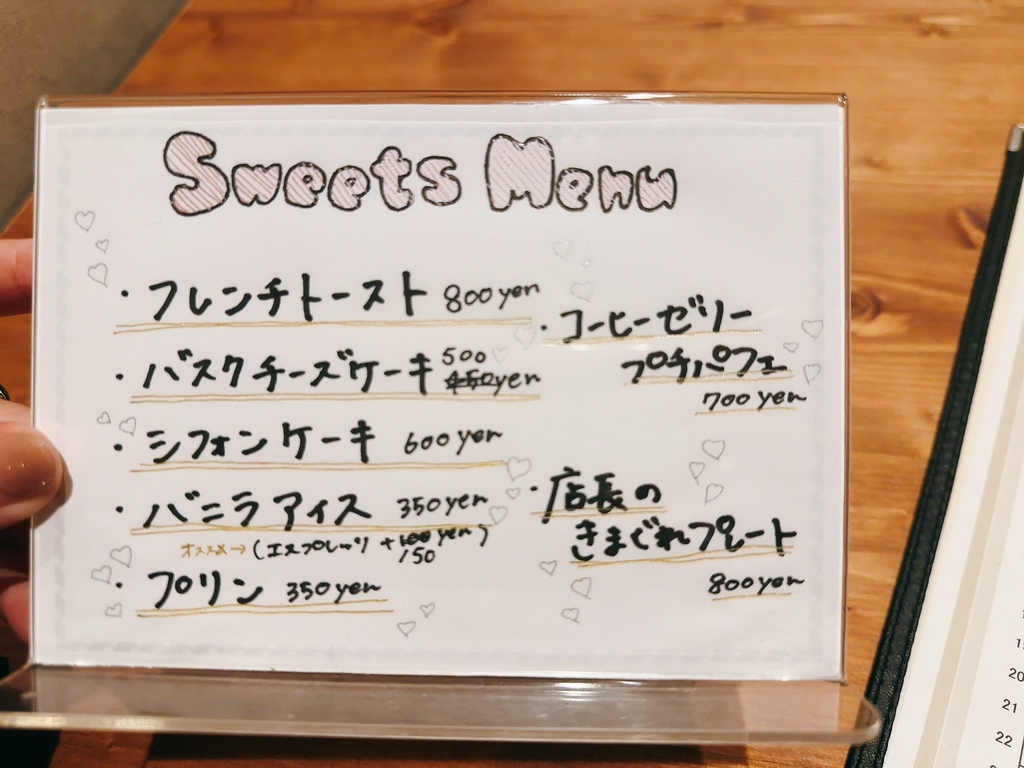 Sweets Menu
・フレンチトースト 800yen
・バスクチーズケーキ 500
450yen
・シフォンケーキ 600yen
・バニラアイス 350yen
オススメ→(エスプレッソ +100yen)
150
・プリン 350yen
・コーヒーゼリー
プチパフェ
700yen
・店長の
きまぐれプレート
800yen
20
21
22